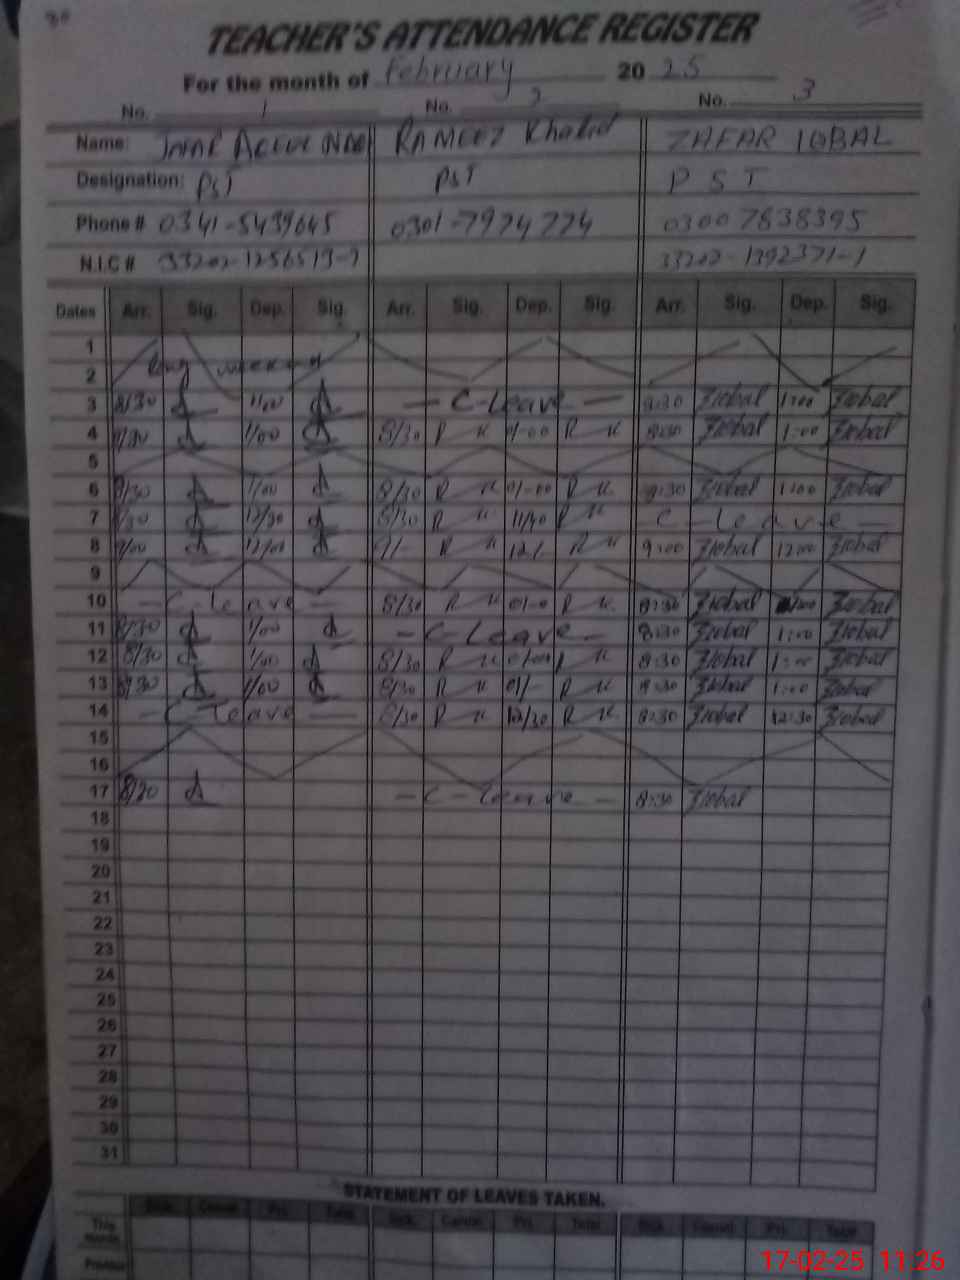 TEACHER'S ATTENDANCE REGISTER
For the month of February 2025
No. 1 No. 2 No. 3
Name: RAMEEZ Khalid ZAFAR IQBAL
Designation: PST PST PST
Phone # 0341-5439645 0301-7974774 03007838395
N.I.C # 33202-1392371-1
Dates Arr. Sig. Dep. Sig. Arr. Sig. Dep. Sig. Arr. Sig. Dep. Sig.
1
2 long weekend
3 8/30 1/00 - C-Leave - 8:30 Ziqbal 1:00 Ziqbal
4 8/30 1/00 8/30 R 01-00 R 8:30 Ziqbal 1:00 Ziqbal
5
6 8/30 1/00 8/30 R 01-00 R 8:30 Ziqbal 1:00 Ziqbal
7 8/30 12/30 8/30 R R C-leave-
8 9/00 12/00 9/- R 12/- R 9:00 Ziqbal 12:00 Ziqbal
9
10 -C-leave- 8/30 R 01-0 R 8:30 Ziqbal Ziqbal
11 8/30 1/00 -C-Leave- 8:30 Ziqbal 1:00 Ziqbal
12 8/30 1/00 8/30 R R 8:30 Ziqbal 1:00 Ziqbal
13 8/30 1/00 8/30 R 01/- R 8:30 Ziqbal 1:00 Ziqbal
14 -C-Leave- 8/30 R 12/30 R 8:30 Ziqbal 12:30 Ziqbal
15
16
17 8/30 -C-Leave- 8:30 Ziqbal
18
19
20
21
22
23
24
25
26
27
28
29
30
31
STATEMENT OF LEAVES TAKEN.
Sick. Casual Pri. Total Sick. Casual Pri. Total Sick. Casual Pri. Total
This month.
Previous
17-02-25 11:26